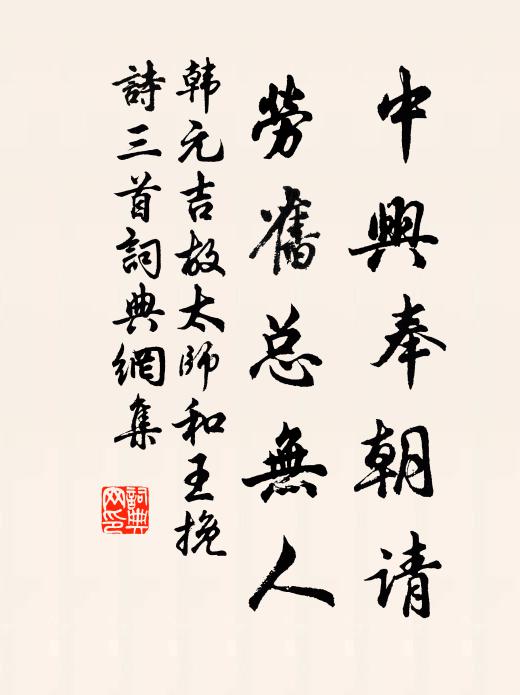 中興奉朝请
勞舊总無人
韩元吉故太師和王挽
詩三首詞典網集
詞典网印